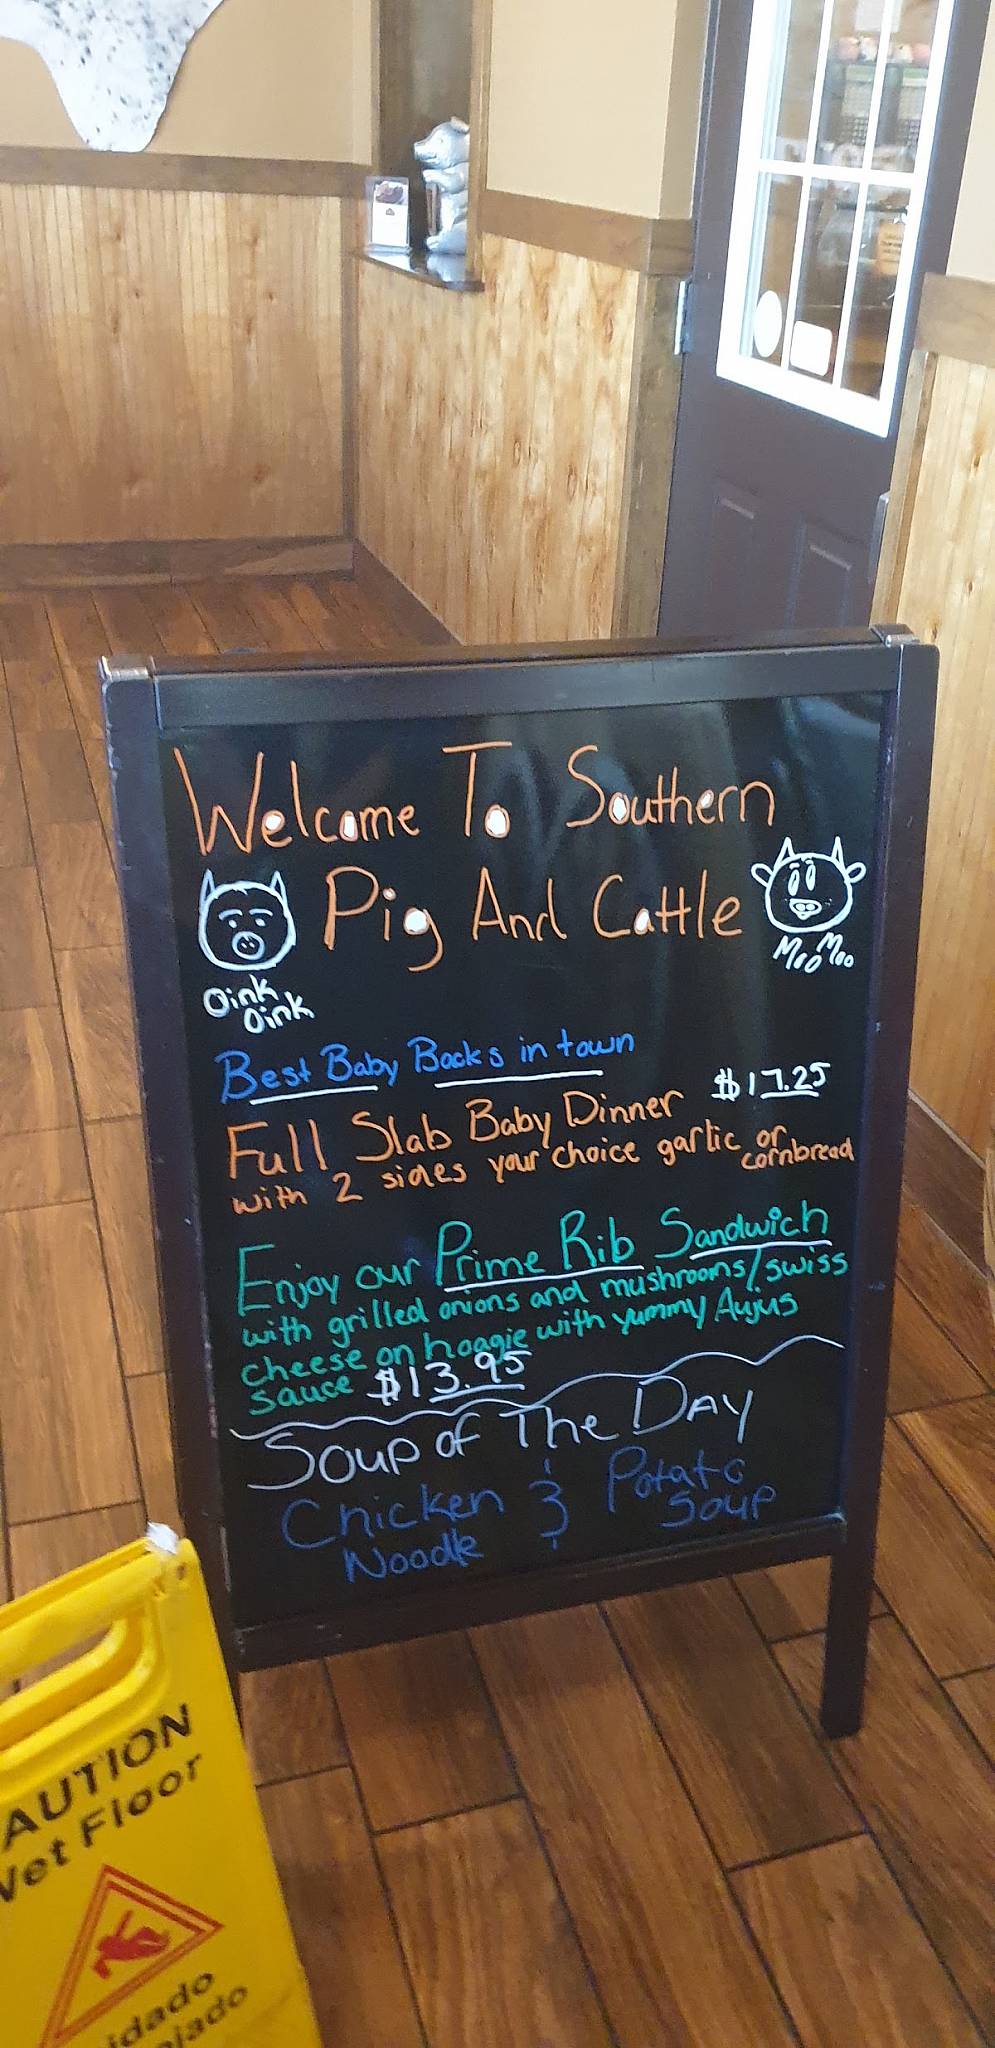 Welcome To Southern
Pig And Cattle
Oink
Oink
Moo Moo
Best Baby Backs in town
Full Slab Baby Dinner $17.25
with 2 sides your choice garlic or
cornbread
Enjoy our Prime Rib Sandwich
with grilled onions and mushrooms/swiss
cheese on hoagie with yummy Aujus
sauce $13.95
Soup of The Day
Chicken & Potato
Noodle Soup
AUTION
Wet Floor
idado
ojado